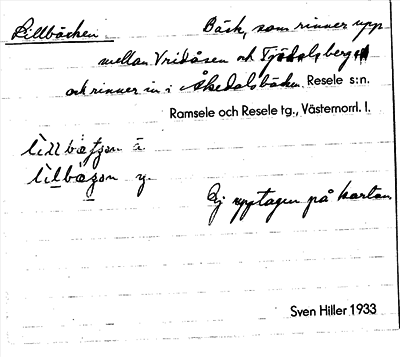 Lillbäcken
Bäck, som rinner upp
mellan Vridåsen och Tjädalsberget
och rinner in i Åkedalsbäcken. Resele s:n.
Ramsele och Resele tg., Västernorrl. l.
ä.
y.
Ej upptagen på kartan
Sven Hiller 1933